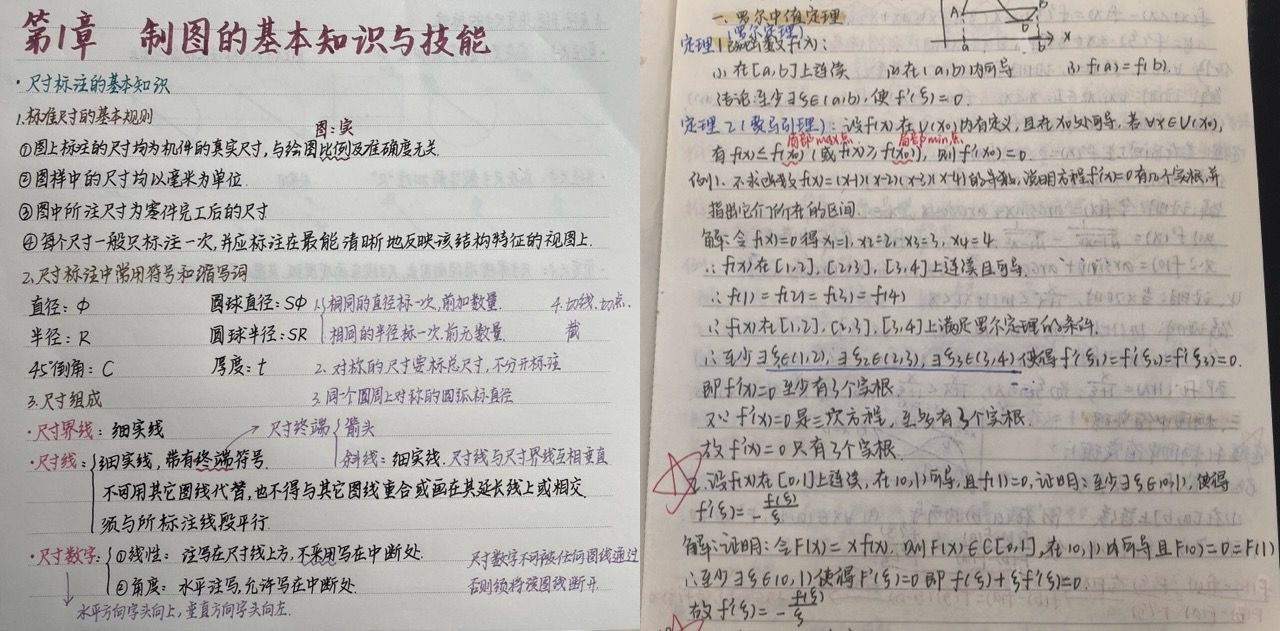 第1章 制图的基本知识与技能
·尺寸标注的基本知识
1.标准尺寸的基本规则
图:实
①图上标注的尺寸均为机件的真实尺寸,与绘图比例及准确度无关.
②图样中的尺寸均以毫米为单位.
③图中所注尺寸为零件完工后的尺寸
④每个尺寸一般只标注一次,并应标注在最能清晰地反映该结构特征的视图上.
2.尺寸标注中常用符号和缩写词
直径:Φ 圆球直径:SΦ 1.相同的直径标一次.前加数量. 4.切线.切点.
半径:R 圆球半径:SR 相同的半径标一次.前无数量. 截
45°倒角:C 厚度:t 2.对称的尺寸要标总尺寸,不分开标注
3.尺寸组成 3.同个圆周上对称的圆弧标直径
·尺寸界线:细实线 尺寸终端 箭头
·尺寸线:细实线,带有终端符号. 斜线:细实线.尺寸线与尺寸界线互相垂直
不可用其它图线代替,也不得与其它图线重合或画在其延长线上或相交.
须与所标注线段平行.
·尺寸数字 ①线性:注写在尺寸线上方,不采用写在中断处. 尺寸数字不可被任何图线通过
②角度:水平注写,允许写在中断处. 否则须将该图线断开.
水平方向字头向上,垂直方向字头向左.
A B
a b x
一、罗尔中值定理
(罗尔定理)
定理1 函数f(x):
(1)在[a,b]上连续 (2)在(a,b)内可导 (3)f(a)=f(b).
结论:至少∃ξ∈(a,b),使f'(ξ)=0
定理2(费马引理):设f(x)在U(x0)内有定义,且在x0处可导,若∀x∈U(x0),
局部max点 局部min点
有f(x)≤f(x0)(或f(x)≥f(x0)),则f'(x0)=0.
例1.不求函数f(x)=(x-1)(x-2)(x-3)(x-4)的导数,说明方程f'(x)=0有几个实根,并
指出它们所在的区间.
解:令f(x)=0得x1=1,x2=2,x3=3,x4=4.
∵f(x)在[1,2],[2,3],[3,4]上连续且可导.
∴f(1)=f(2)=f(3)=f(4)
∴f(x)在[1,2],[2,3],[3,4]上满足罗尔定理的条件.
∴至少∃ξ1∈(1,2),∃ξ2∈(2,3),∃ξ3∈(3,4)使得f'(ξ1)=f'(ξ2)=f'(ξ3)=0.
即f'(x)=0至少有3个实根
又∵f'(x)=0是三次方程,至多有3个实根.
故f'(x)=0只有3个实根.
2.设f(x)在[0,1]上连续,在(0,1)可导,且f(1)=0,证明:至少∃ξ∈(0,1),使得
f'(ξ)=-f(ξ)/ξ
解:证明:令F(x)=xf(x).则F(x)∈C[0,1],在(0,1)内可导且F(0)=0=F(1)
∴至少∃ξ∈(0,1)使得F'(ξ)=0即f(ξ)+ξf'(ξ)=0.
故f'(ξ)=-f(ξ)/ξ